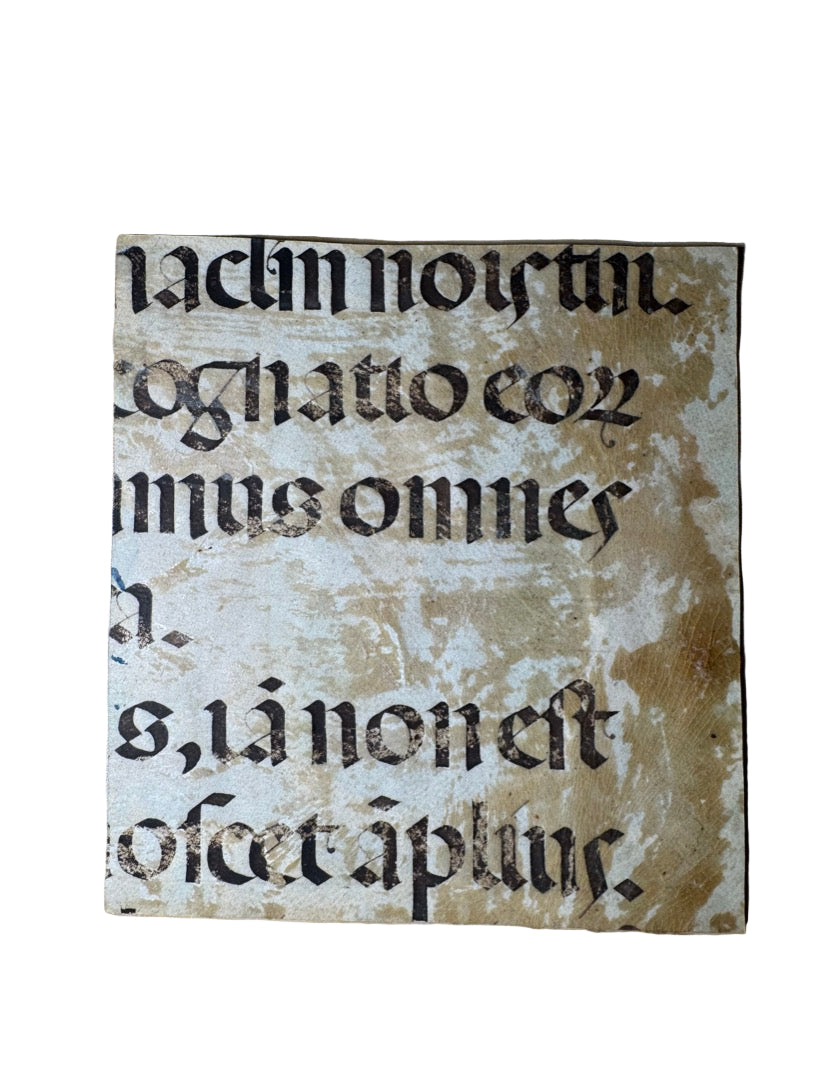 naclm nois tui.
cognatio eoꝝ
mus omnes
a.
s, iá non eſt
oſcet āplius.